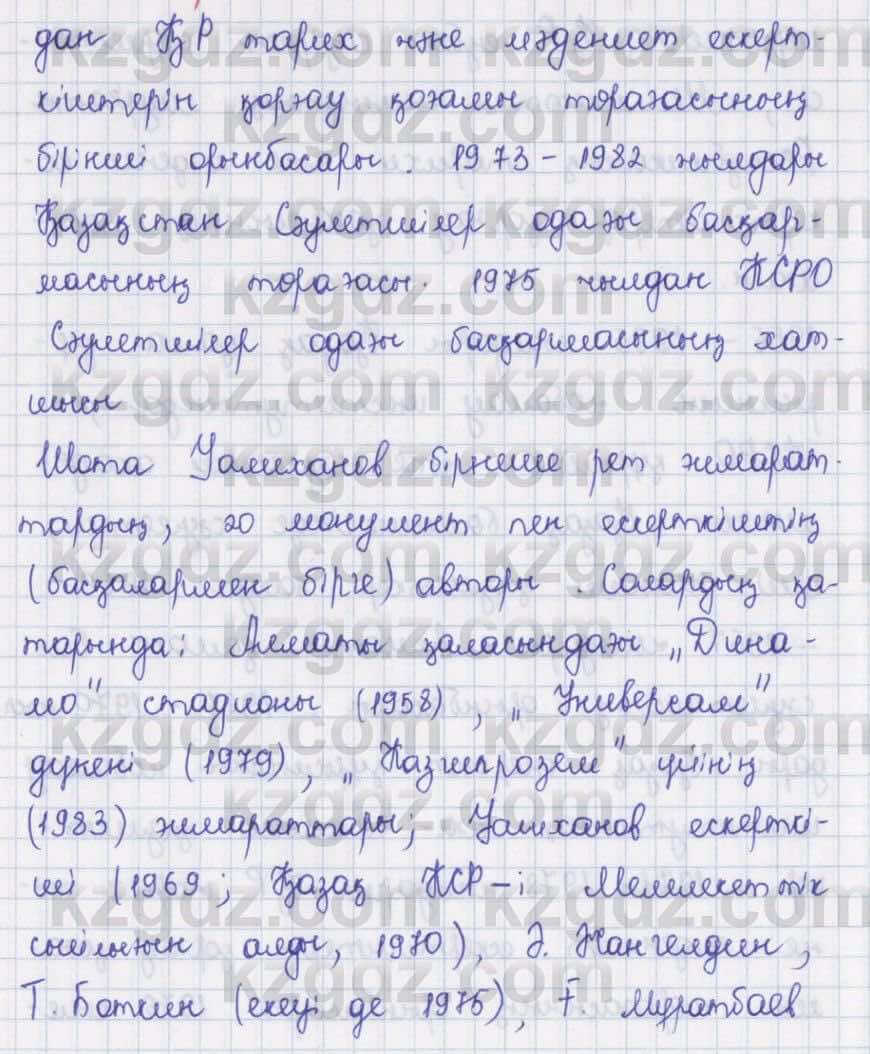 дан ҚР тарих және мәдениет ескерт-
кіштерін қорғау қоғамы төрағасының
бірінші орынбасары. 1973 - 1982 жылдары
Қазақстан Сәулетшілер одағы басқар-
масының төрағасы. 1975 жылдан КСРО
Сәулетшілер одағы басқармасының хат-
шысы
Шота Уалиханов бірнеше рет жмарат-
тардың, 20 монумент пен ескерткіштің
(басқалармен бірге) авторы. Солардың қа-
тарында: Алматы қаласындағы „Дина-
мо" стадионы (1958), „Универсам"
дүкені (1979), „Казгипрозем" үйінің
(1983) жмараттары; Уалиханов ескерткі-
ші (1969; Қазақ КСР-і Мемлекеттік
сыйлығын алды, 1970), Ә. Жангелдин,
Т. Бокин (екеуі де 1975), Ғ. Мұратбаев
kzgdz.com